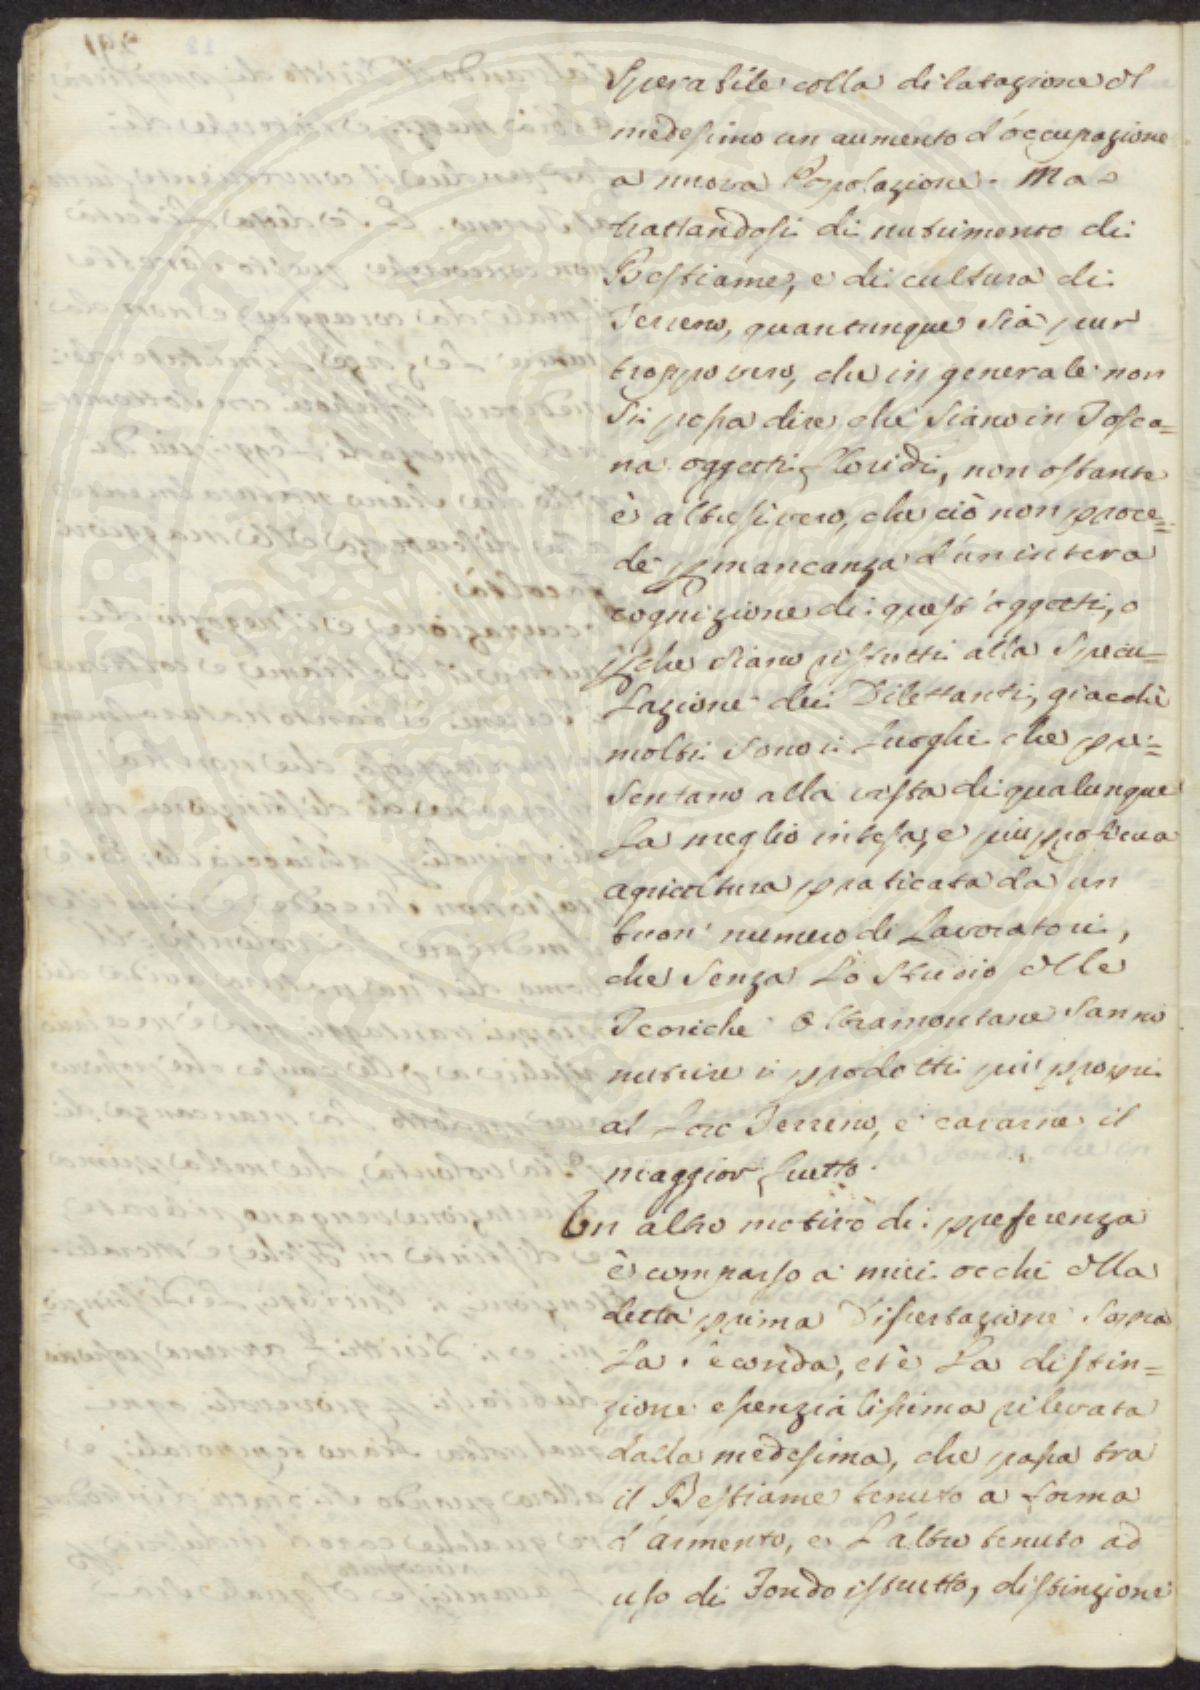 sperabile colla dilatazione del
medesimo un aumento d'occupazione
a nuova Popolazione. Ma
trattandosi di nutrimento di
Bestiame, e di cultura di
Terreno, quantunque sia pur
troppo vero, che in generale non
si possa dire che siano in Tosca=
na oggetti floridi, non ostante
è altresì vero, che ciò non proce=
de p mancanza d'un intera
cognizione di quest'oggetti, o
pche siano ristretti alla specu=
lazione dei Dilettanti, giacchè
molti sono i Luoghi che pre=
sentano alla vista di qualunque
La meglio intesa, e più proficua
agricoltura praticata da un
buon numero di Lavoratori,
che senza Lo Studio delle
Teoriche Oltramontane sanno
nutrire i prodotti più propri
al Loro Terreno, e cavarne il
maggior frutto.
Un altro motivo di preferenza
è comparso a' miei occhi della
detta prima Dissertazione sopra
La seconda, et è La distin=
zione essenzialissima rilevata
dalla medesima, che passa tra
il Bestiame tenuto a forma
d'armento, e L'altro tenuto ad
uso di Fondo istrutto, distinzione